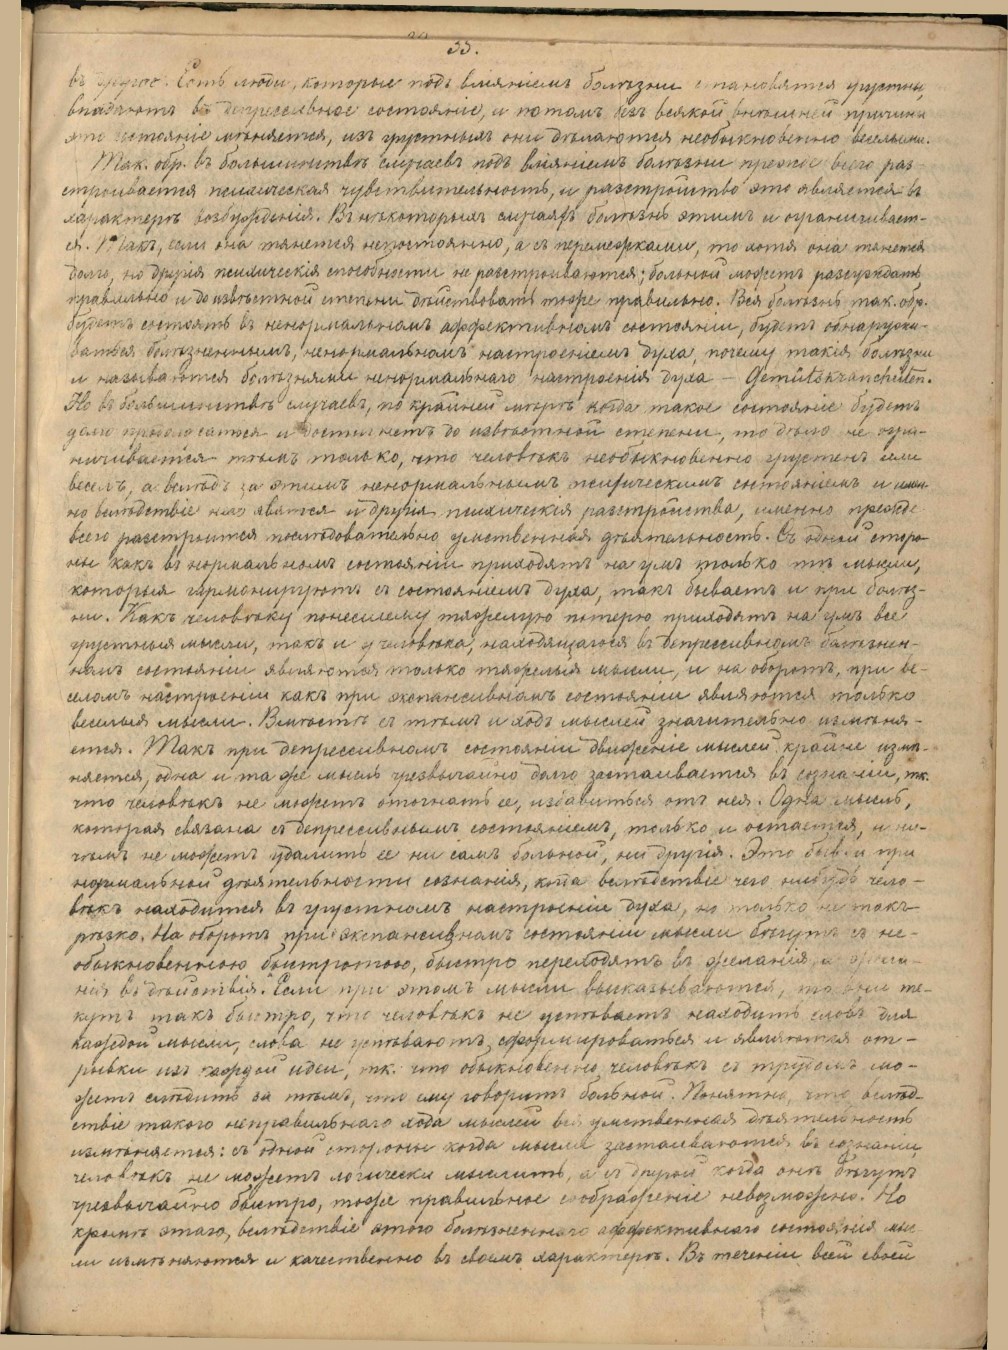 33.
въ другое. Есть люди, которые подъ вліяніемъ болѣзни становятся грустны,
впадаютъ въ депрессивное состояніе, и потомъ безъ всякой внѣшней причины
это состояніе мѣняется, изъ грустныхъ они дѣлаются необыкновенно веселыми.
Так. обр. въ большинствѣ случаевъ подъ вліяніемъ болѣзни прежде всего раз-
страивается психическая чувствительность, и разстройство это является въ
характерѣ возбужденія. Въ нѣкоторыхъ случаяхъ болѣзнь этимъ и ограничивает-
ся. Такъ, если она тянется непостоянно, а съ перемежками, то хотя она тянется
долго, но другія психическія способности не разстроиваются; больной можетъ разсуждать
правильно и до извѣстной степени дѣйствовать тоже правильно. Вся болѣзнь так. обр.
будетъ состоять въ ненормальномъ аффективномъ состояніи, будетъ обнаружи-
ваться болѣзненнымъ, ненормальномъ настроеніемъ духа, почему такія болѣзни
и называются болѣзнями ненормальнаго настроенія духа — Gemütskrancheiten.
Но въ большинствѣ случаевъ, по крайней мѣрѣ когда такое состояніе будетъ
долго продолжаться и достигнетъ до извѣстной степени, то дѣло не огра-
ничивается тѣмъ только, что человѣкъ необыкновенно грустенъ или
веселъ, а вслѣдъ за этимъ ненормальнымъ психическимъ состояніемъ и имен-
но вслѣдствіе него явятся и другія психическія разстройства, именно прежде
всего разстроится послѣдовательно умственная дѣятельность. Съ одной сторо-
ны какъ въ нормальномъ состояніи приходятъ на умъ только тѣ мысли,
которыя гармонируютъ съ состояніемъ духа, такъ бываетъ и при болѣз-
ни. Какъ человѣку понесшему тяжелую потерю приходятъ на умъ все
грустныя мысли, такъ и у человѣка, находящагося въ депрессивномъ болѣзнен-
номъ состояніи являются только тяжелыя мысли, и на оборотъ, при ве-
селомъ настроеніи какъ при экспансивномъ состояніи являются только
веселыя мысли. Вмѣстѣ съ тѣмъ и ходъ мыслей значительно измѣня-
ется. Такъ при депрессивномъ состояніи движеніе мыслей крайне измѣ-
няется, одна и та же мысль чрезвычайно долго застаивается въ сознаніи, тк.
что человѣкъ не можетъ отогнать ее, избавиться отъ нея. Одна мысль,
которая связана съ депрессивнымъ состояніемъ, только и остается, и ни-
чѣмъ не можетъ удалить ее ни самъ больной, ни другія. Это было и при
нормальной дѣятельности сознанія, когда вслѣдствіе чего нибудь чело-
вѣкъ находится въ грустномъ настроеніи духа, но только не такъ
рѣзко. На оборотъ при экспансивномъ состояніи мысли бѣгутъ съ не-
обыкновенною быстротою, быстро переходятъ въ желанія, а жела-
нія въ дѣйствія. Если при этомъ мысли высказываются, то они те-
кутъ такъ быстро, что человѣкъ не успѣваетъ находить словъ для
каждой мысли, слова не успѣваютъ сформироваться и являются от-
рывки изъ каждой идеи, тк. что обыкновенно человѣкъ съ трудомъ мо-
жетъ слѣдить за тѣмъ, что ему говоритъ больной. Понятно, что вслѣд-
ствіе такого неправильнаго хода мыслей вся умственная дѣятельность
измѣняется: съ одной стороны когда мысли застаиваются въ сознаніи
человѣкъ не можетъ логически мыслить, а съ другой когда онѣ бѣгутъ
чрезвычайно быстро, тоже правильное соображеніе невозможно. Но
кромѣ этого, вслѣдствіе этого болѣзненнаго аффективнаго состоянія мыс-
ли измѣняются и качественно въ своемъ характерѣ. Въ теченіи всей своей